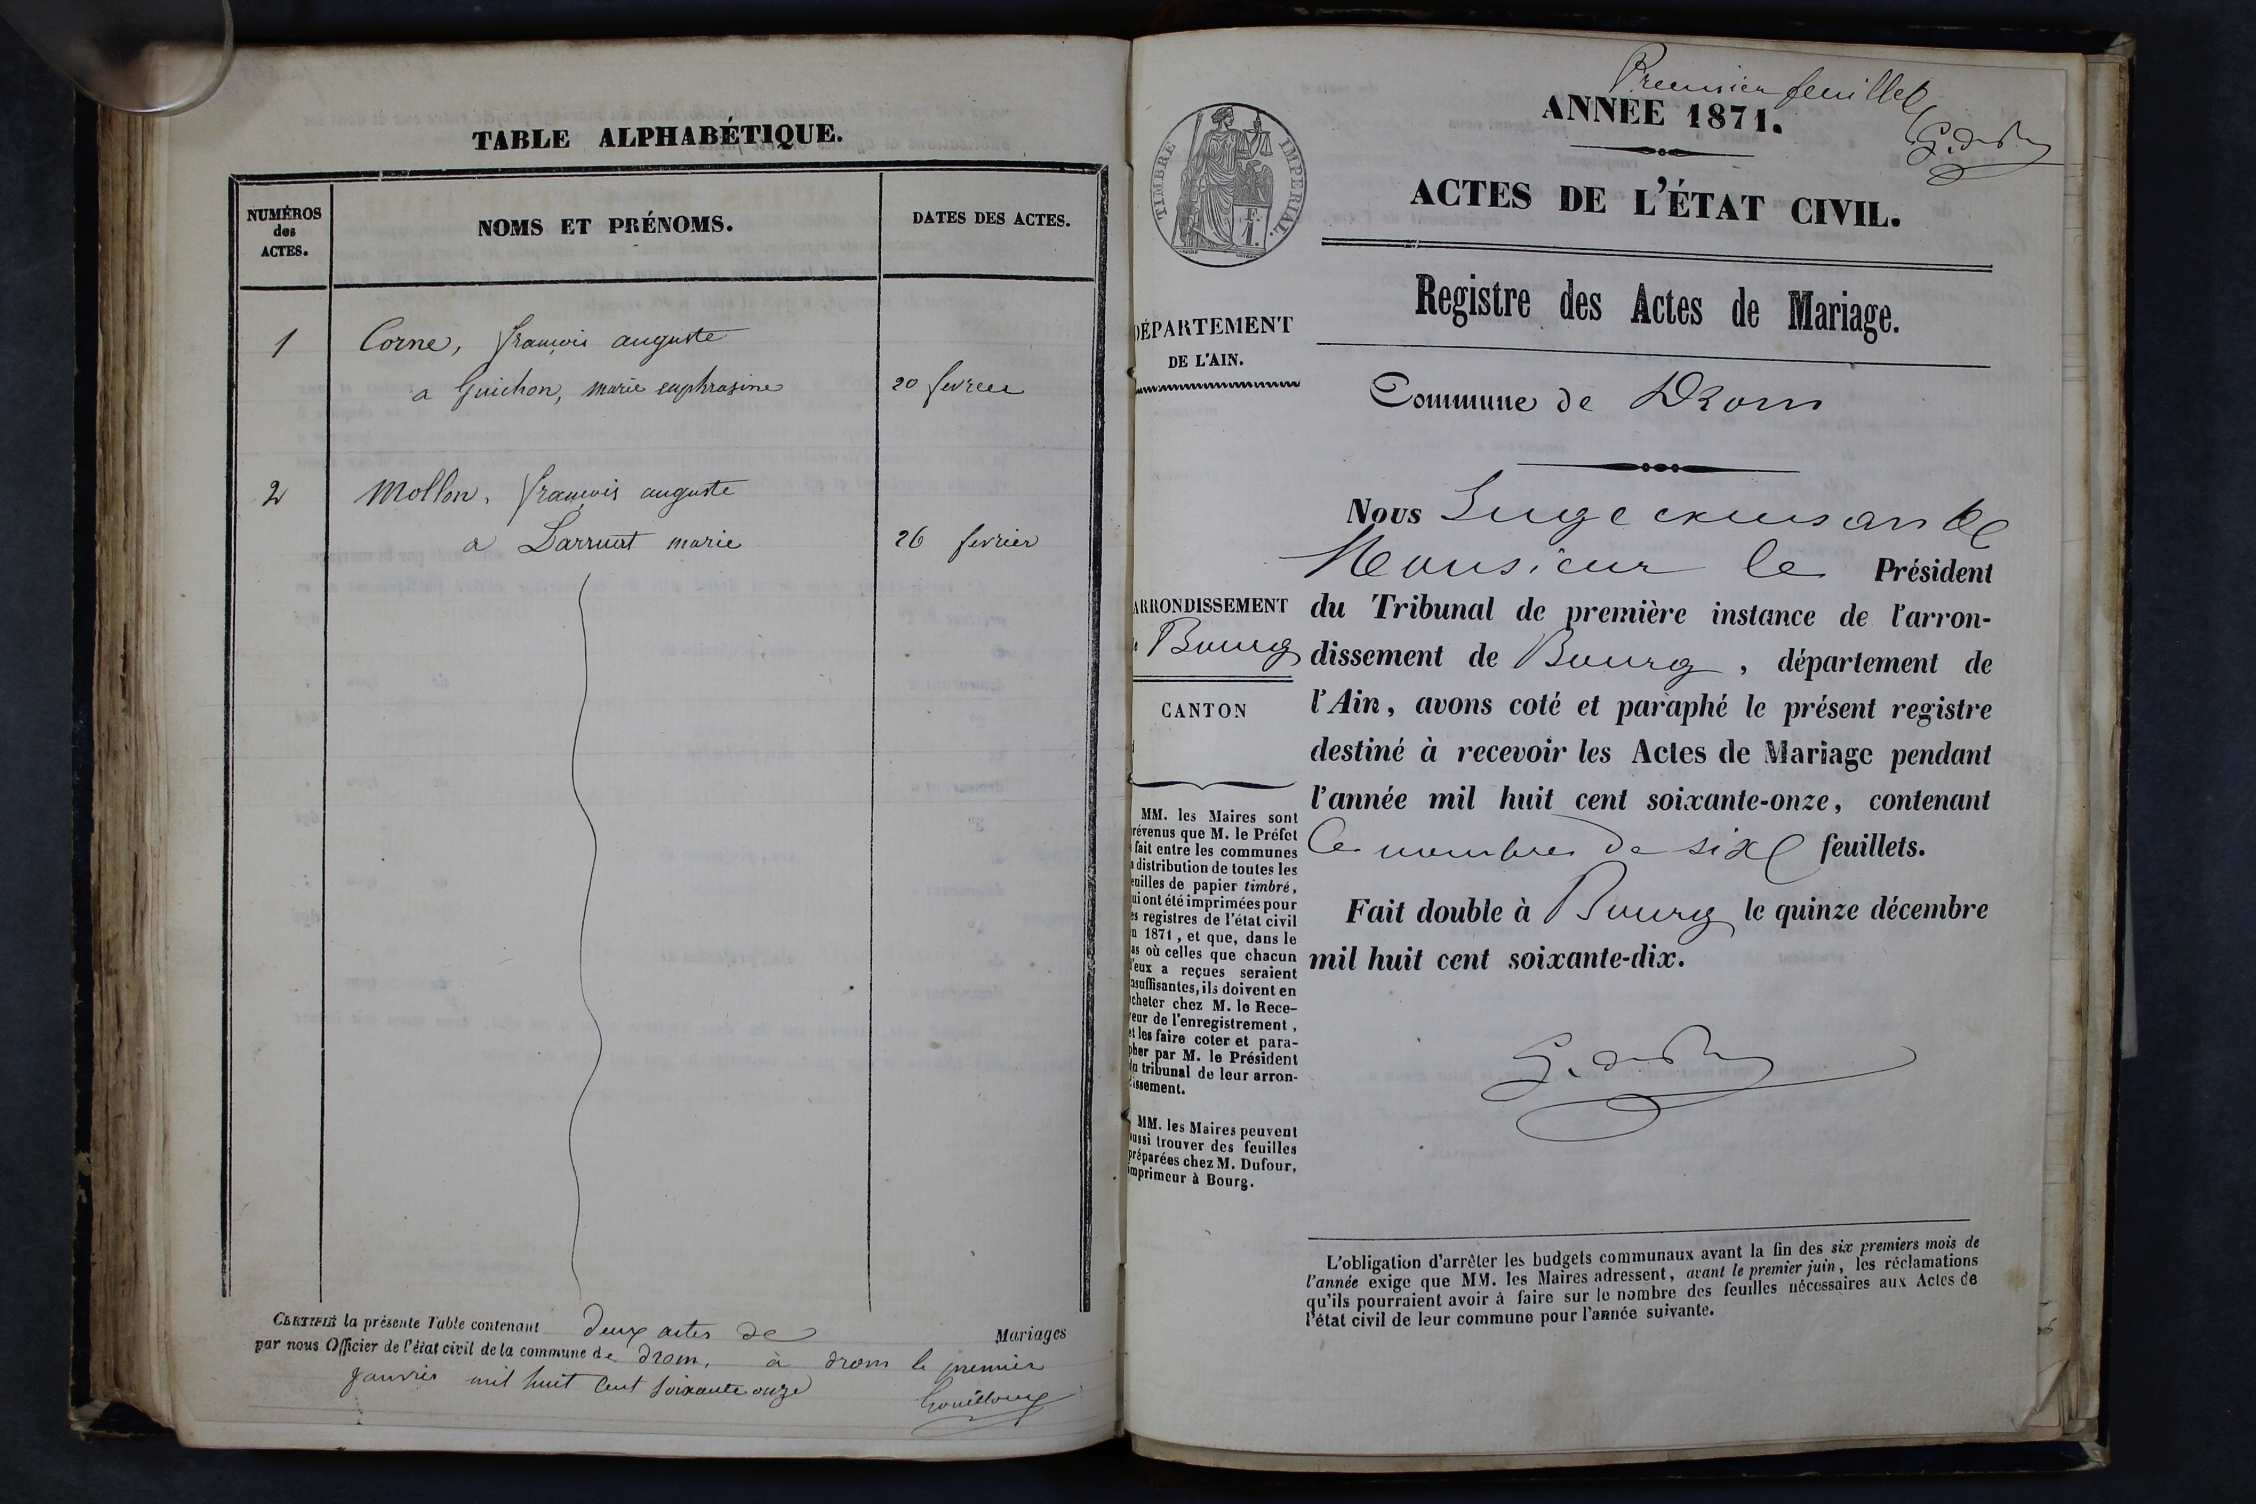 TABLE ALPHABÉTIQUE.
NUMÉROS
des
ACTES.
NOMS ET PRÉNOMS.
DATES DES ACTES.
1
Corne, françois auguste
a Guichon, marie euphrasine
20 fevrier
2
Mollon, françois auguste
a Darruat marie
26 fevrier
CERTIFIÉ la présente Table contenant deux actes de Mariages
par nous Officier de l'état civil de la commune de drom, à drom le premier
Janvier mil huit Cent soixante onze
Premier feuillet
TIMBRE IMPÉRIAL.
F.
1.
ANNÉE 1871.
ACTES DE L'ÉTAT CIVIL.
Registre des Actes de Mariage.
DÉPARTEMENT
DE L'AIN.
Commune de Drom
Nous Juge
Monsieur le Président
ARRONDISSEMENT
Bourg
CANTON
du Tribunal de première instance de l'arron-
dissement de Bourg, département de
l'Ain, avons coté et paraphé le présent registre
destiné à recevoir les Actes de Mariage pendant
l'année mil huit cent soixante-onze, contenant
le nombre de six feuillets.
Fait double à Bourg le quinze décembre
mil huit cent soixante-dix.
MM. les Maires sont
révenus que M. le Préfet
fait entre les communes
distribution de toutes les
euilles de papier timbré,
ui ont été imprimées pour
es registres de l'état civil
n 1871, et que, dans le
as où celles que chacun
'eux a reçues seraient
nsuffisantes, ils doivent en
cheter chez M. le Rece-
veur de l'enregistrement,
et les faire coter et para-
pher par M. le Président
du tribunal de leur arron-
issement.
MM. les Maires peuvent
ussi trouver des feuilles
préparées chez M. Dufour,
imprimeur à Bourg.
L'obligation d'arrêter les budgets communaux avant la fin des six premiers mois de
l'année exige que MM. les Maires adressent, avant le premier juin, les réclamations
qu'ils pourraient avoir à faire sur le nombre des feuilles nécessaires aux Actes de
l'état civil de leur commune pour l'année suivante.